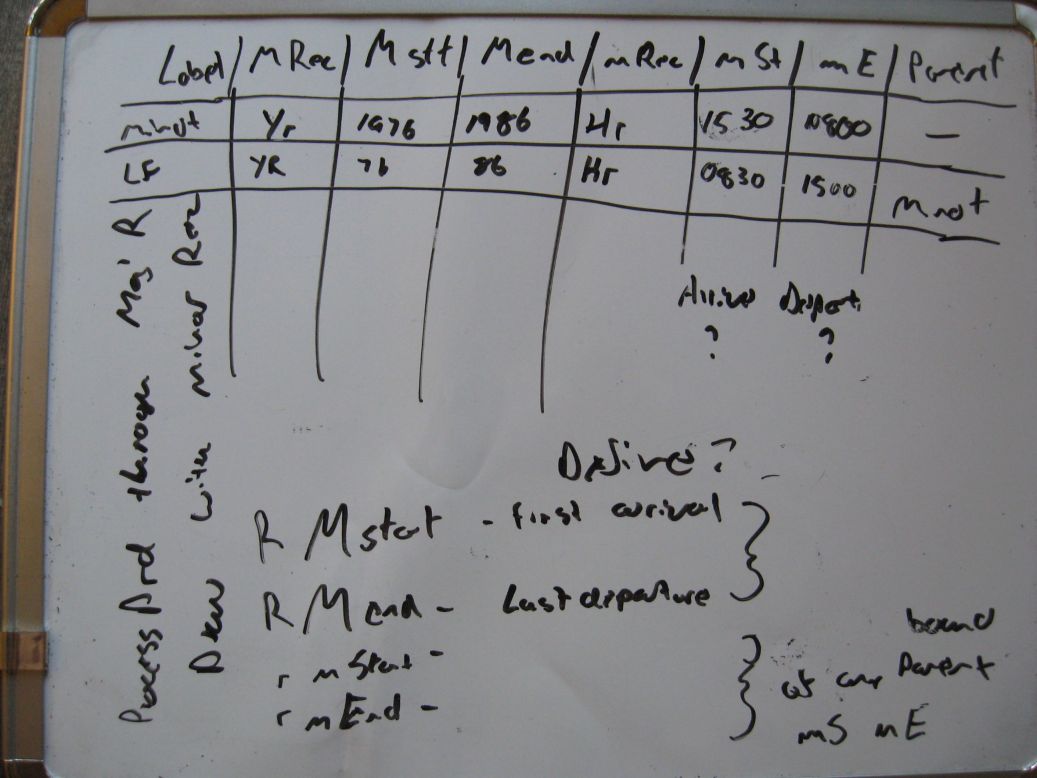 Label / M Rec / M stt / M end / m Rec / m St / m E / Parent
minot Yr 1976 1986 Hr 1530 0800 —
LF YR 76 86 Hr 0830 1500 Minot
Arrive Depart
? ?
Define?
R M start - first arrival
R M end - Last departure
r m Start -
r m End -
bound
at any Parent
mS mE
Process Ard through Maj R
Draw with minor Rec